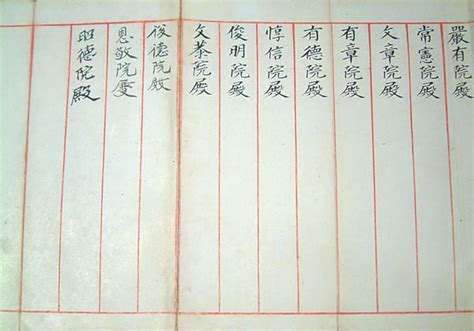 嚴有院殿
常憲院殿
文章院殿
有章院殿
有德院殿
惇信院殿
俊明院殿
文恭院殿
俊德院殿
恩敬院殿
昭德院殿